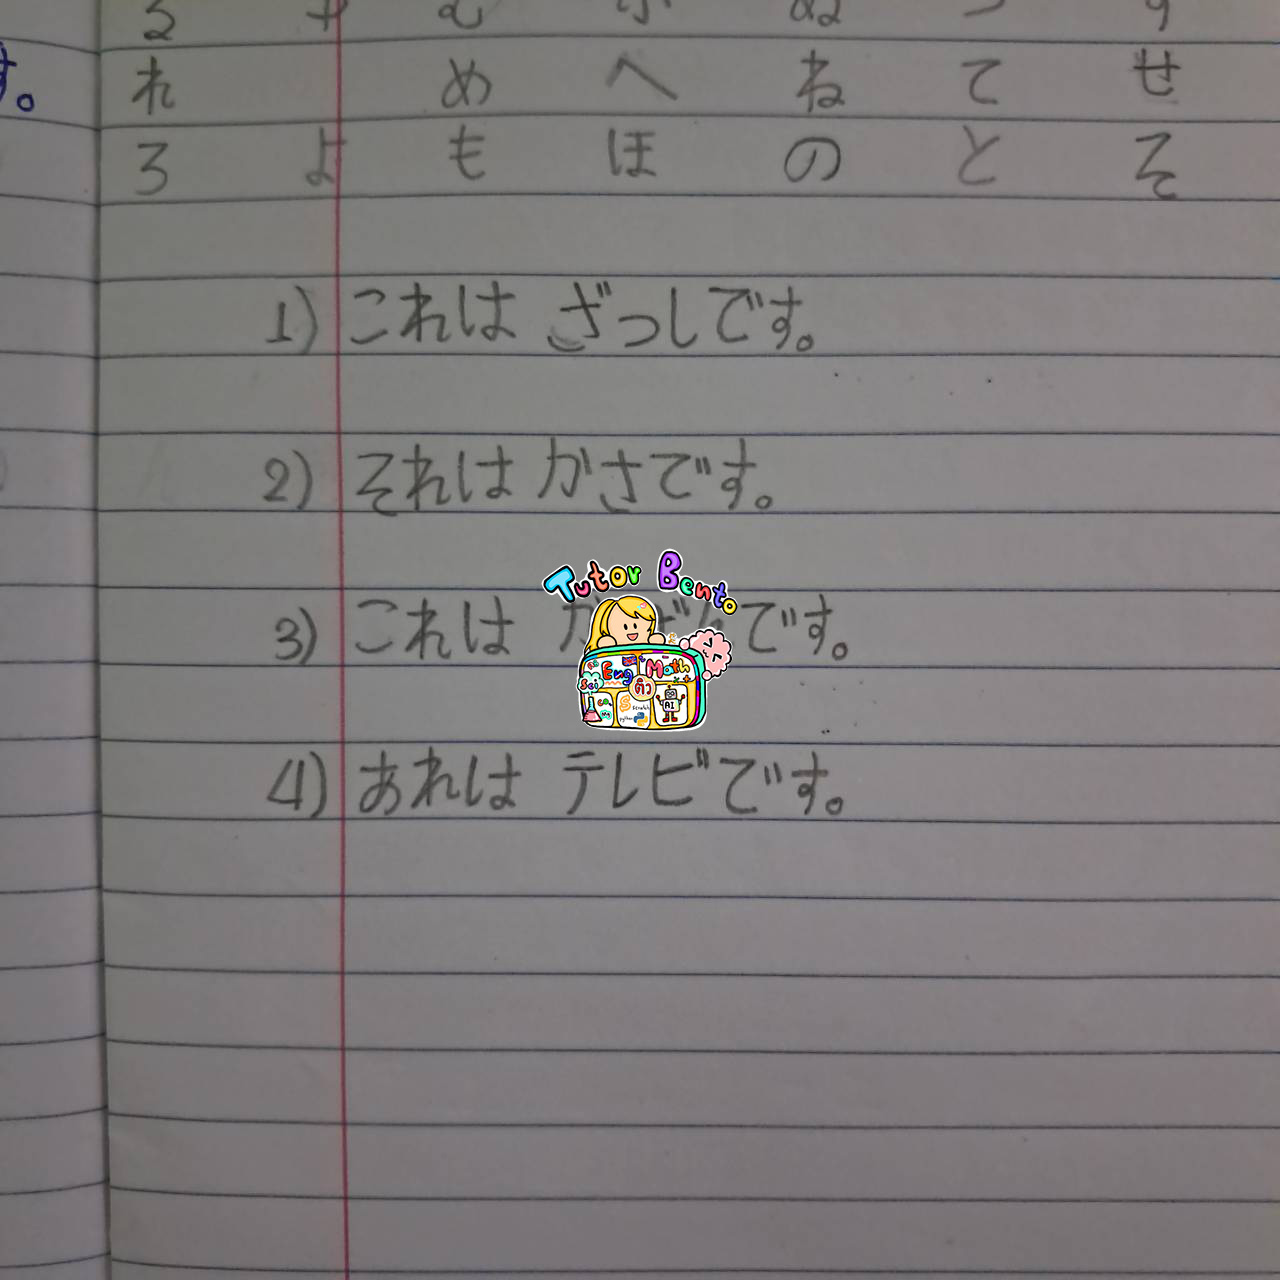 る や む ふ ぬ つ す
す。
れ め へ ね て せ
ろ よ も ほ の と そ
1) これは ざっしです。
2) それは かさです。
Tutor Bento
3) これは です。
Eng Math
Sci ติว AI
scratch
python
4) あれは テレビです。